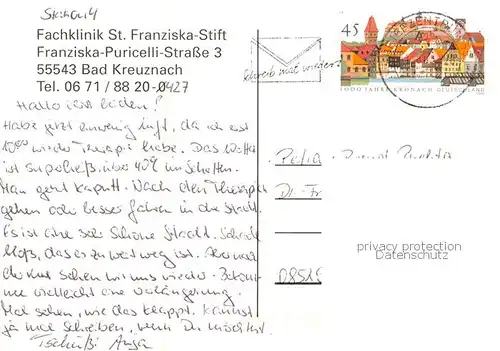 Station 4
Fachklinik St. Franziska-Stift
Franziska-Puricelli-Straße 3
55543 Bad Kreuznach
Tel. 06 71 / 88 20-0427
Hallo ihr beiden!
Habe jetzt ein wenig Luft, da ich erst
10:00 wieder Therapie habe. Das Wetter
ist superheiß, über 40° im Schatten.
Man geht kaputt. Nach den Therapien
gehen oder besser fahren in die Stadt.
Es ist eine sehr schöne Stadt. Schade
bloß, dass es zu weit weg ist. Aber nach
der Kur sehen wir uns wieder. Bekomme
vielleicht eine Verlängerung.
Mal sehen, wie das klappt. Kannst
ja mal schreiben, wenn Du möchtest.
Tschüß Anja
Schreib mal wieder!
45
BRIEFZENTRUM
1000 JAHRE KRONACH DEUTSCHLAND
Petra
Dr.-Fr
0851
privacy protection
Datenschutz